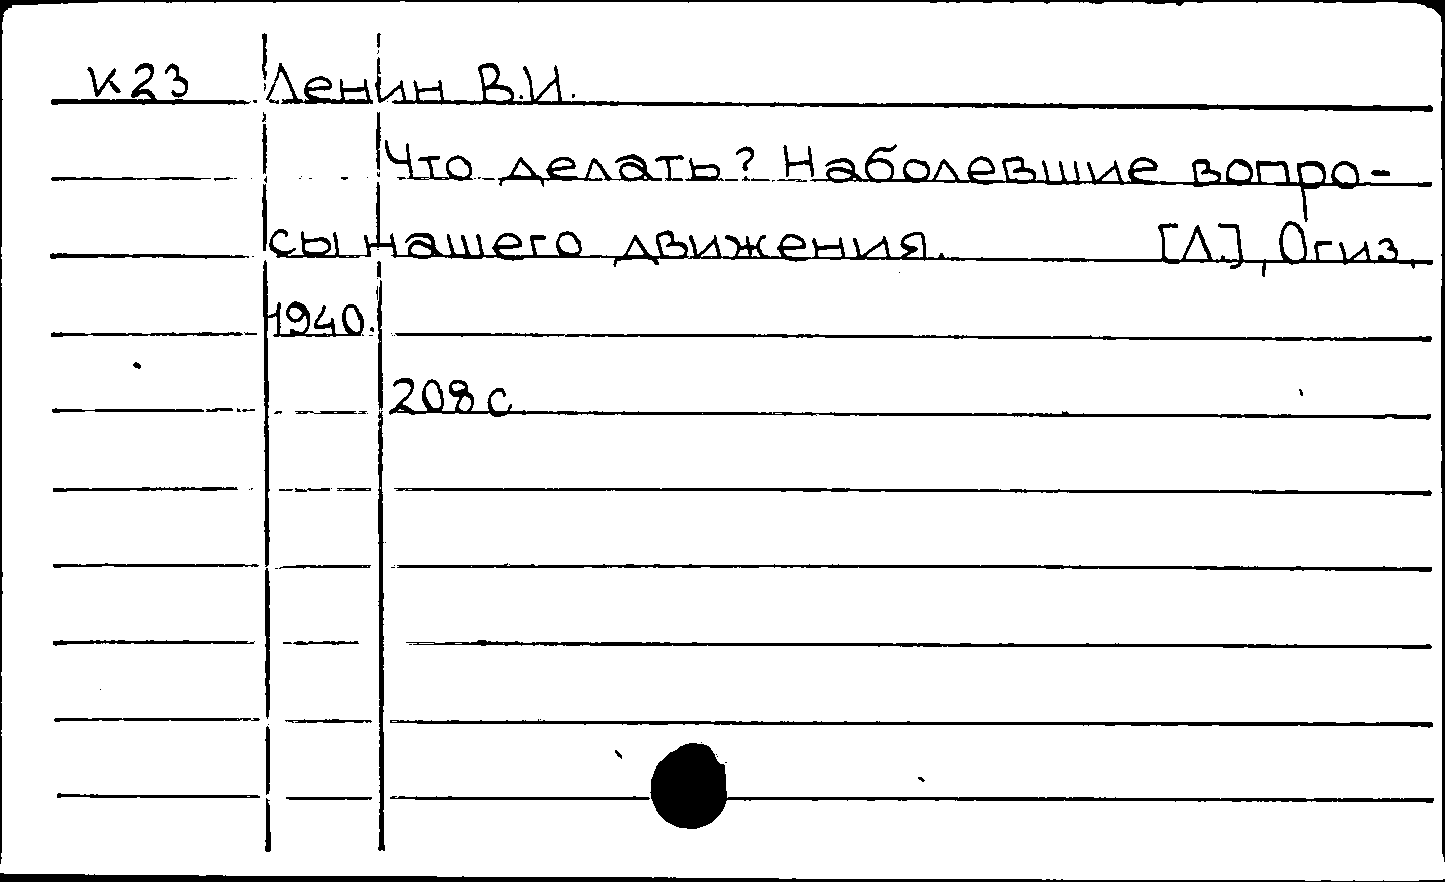 К23 Ленин В.И.
Что делать? Наболевшие вопро-
сы нашего движения. [Л.], Огиз,
1940.
208 с